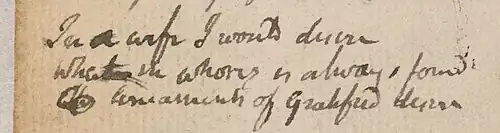 In a wife I would desire
What in whores is always found
The lineaments of Gratified desire